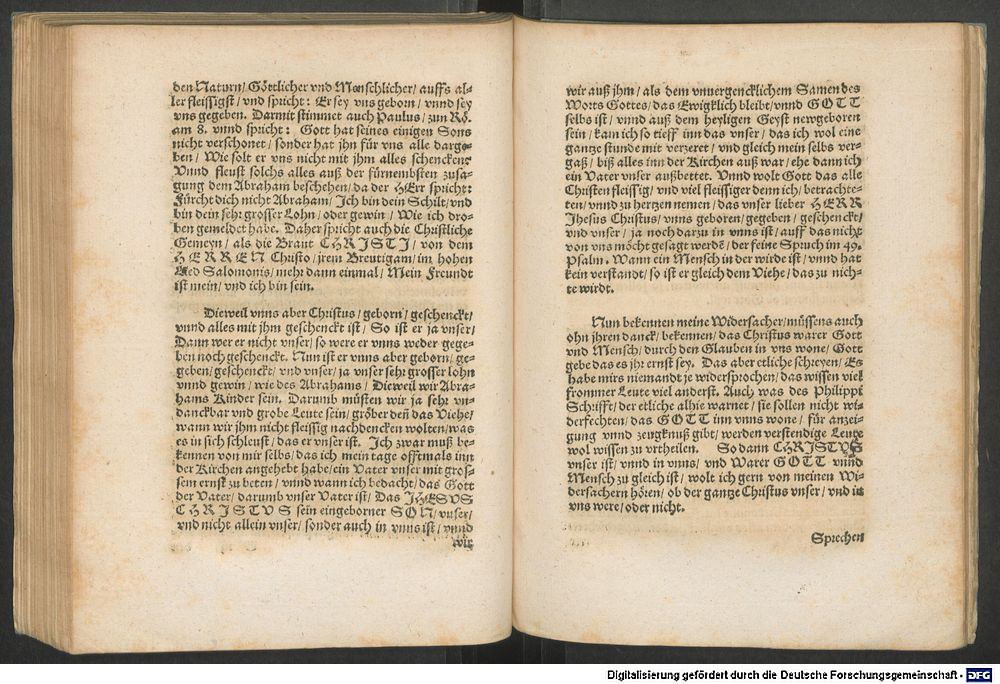 den Naturn/ Göttlicher vnd Menschlicher/ auffs al-
ler fleissigst/ vnd spricht: Er sey vns geborn/ vnnd sey
vns gegeben. Darmit stimmet auch Paulus/ zun Rö.
am 8. vnnd spricht: Gott hat seines einigen Sons
nicht verschonet/ sonder hat jhn für vns alle darge-
ben/ Wie solt er vns nicht mit jhm alles schencken?
Vnnd fleust solchs alles auß der fürnembsten zusa-
gung dem Abraham beschehen/ da der HErr spricht:
Fürcht dich nicht Abraham/ Ich bin dein Schilt/ vnd
bin dein sehr grosser Lohn/ oder gewin/ Wie ich dro-
ben gemeldet habe. Daher spricht auch die Christliche
Gemeyn/ als die Braut CHRISTI/ von dem
HERREN Christo/ jrem Breutigam/ im hohen
Lied Salomonis/ mehr dann einmal/ Mein Freundt
ist mein/ vnd ich bin sein.
Dieweil vnns aber Christus/ geborn/ geschenckt/
vnnd alles mit jhm geschenckt ist/ So ist er ja vnser/
Dann wer er nicht vnser/ so were er vnns weder gege-
ben noch geschenckt. Nun ist er vnns aber geborn/ ge-
geben/ geschenckt/ vnd vnser/ ja vnser sehr grosser lohn
vnnd gewin/ wie des Abrahams/ Dieweil wir Abra-
hams Kinder sein. Darumb müsten wir ja sehr vn-
danckbar vnd grobe Leute sein/ gröber deñ das Viehe/
wann wir jhm nicht fleissig nachdencken wolten/ was
es in sich schleust/ das er vnser ist. Ich zwar muß be-
kennen von mir selbs/ das ich mein tage offtmals inn
der Kirchen angehebt habe/ ein Vater vnser mit gros-
sem ernst zu beten/ vnnd wann ich bedacht/ das Gott
der Vater/ darumb vnser Vater ist/ Das JHESVS
CHRISTVS sein eingeborner SON/ vnser/
vnd nicht allein vnser/ sonder auch in vnns ist/ vnnd
wir
wir auß jhm/ als dem vnuergencklichem Samen des
Worts Gottes/ das Ewigklich bleibt/ vnnd GOTT
selbs ist/ vnnd auß dem heyligen Geyst newgeboren
sein/ kam ich so tieff inn das vnser/ das ich wol eine
gantze stunde mit verzeret/ vnd gleich mein selbs ver-
gaß/ biß alles inn der Kirchen auß war/ ehe dann ich
ein Vater vnser außbettet. Vnnd wolt Gott das alle
Christen fleissig/ vnd viel fleissiger denn ich/ betrachte-
ten/ vnnd zu hertzen nemen/ das vnser lieber HERR
Jhesus Christus/ vnns geboren/ gegeben/ geschenckt/
vnd vnser/ ja noch darzu in vnns ist/ auff das nicht
von vns möcht gesagt werdē/ der feine Spruch im 49.
Psalm. Wann ein Mensch in der wirde ist/ vnnd hat
kein verstandt/ so ist er gleich dem Viehe/ das zu nich-
te wirdt.
Nun bekennen meine Widersacher/ müssens auch
ohn jhren danck/ bekennen/ das Christus warer Gott
vnd Mensch/ durch den Glauben in vns wone/ Gott
gebe das es jhr ernst sey. Das aber etliche schreyen/ Es
habe mirs niemandt je widersprochen/ das wissen viel
frommer Leute viel anderst. Auch was des Philippi
Schrifft/ der etliche alhie warnet/ sie sollen nicht wi-
derfechten/ das GOTT inn vnns wone/ für anzei-
gung vnnd zeugknuß gibt/ werden verstendige Leute
wol wissen zu vrtheilen. So dann CHRISTVS
vnser ist/ vnnd in vnns/ vnd Warer GOTT vnnd
Mensch zu gleich ist/ wolt ich gern von meinen Wi-
dersachern hören/ ob der gantze Christus vnser/ vnd in
vns were/ oder nicht.
Sprechen
Digitalisierung gefördert durch die Deutsche Forschungsgemeinschaft - DFG